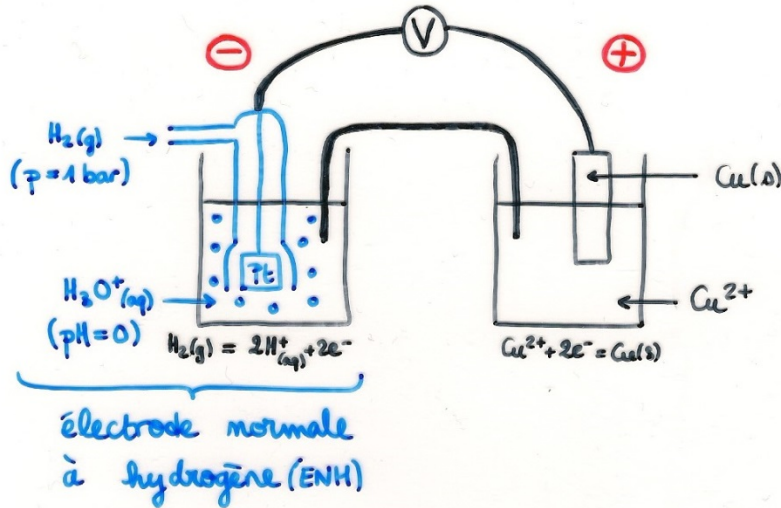 V
−
+
H₂(g)
(p=1 bar)
Pt
H₃O⁺(aq)
(pH=0)
H₂(g) = 2H⁺(aq)+2e⁻
Cu(s)
Cu²⁺
Cu²⁺+2e⁻=Cu(s)
électrode normale
à hydrogène (ENH)